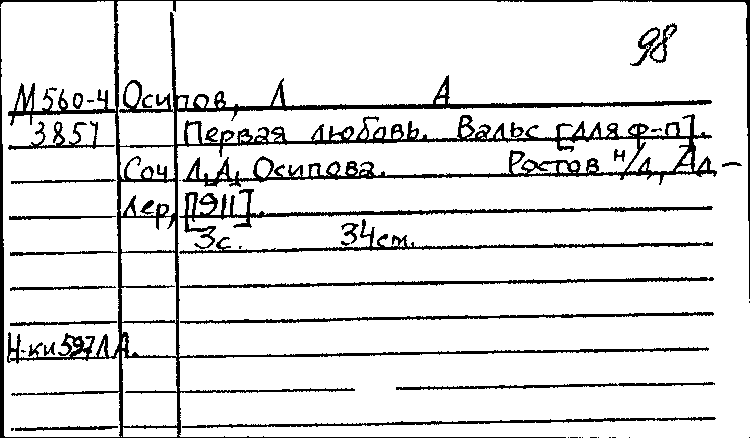 98
М560-4 Осипов, Л А
3857 Первая любовь. Вальс [для ф-п].
Соч Л.А. Осипова. Ростов н/д, Ад-
лер, [1911].
3с. 34см.
Н-ки 597 Л А.